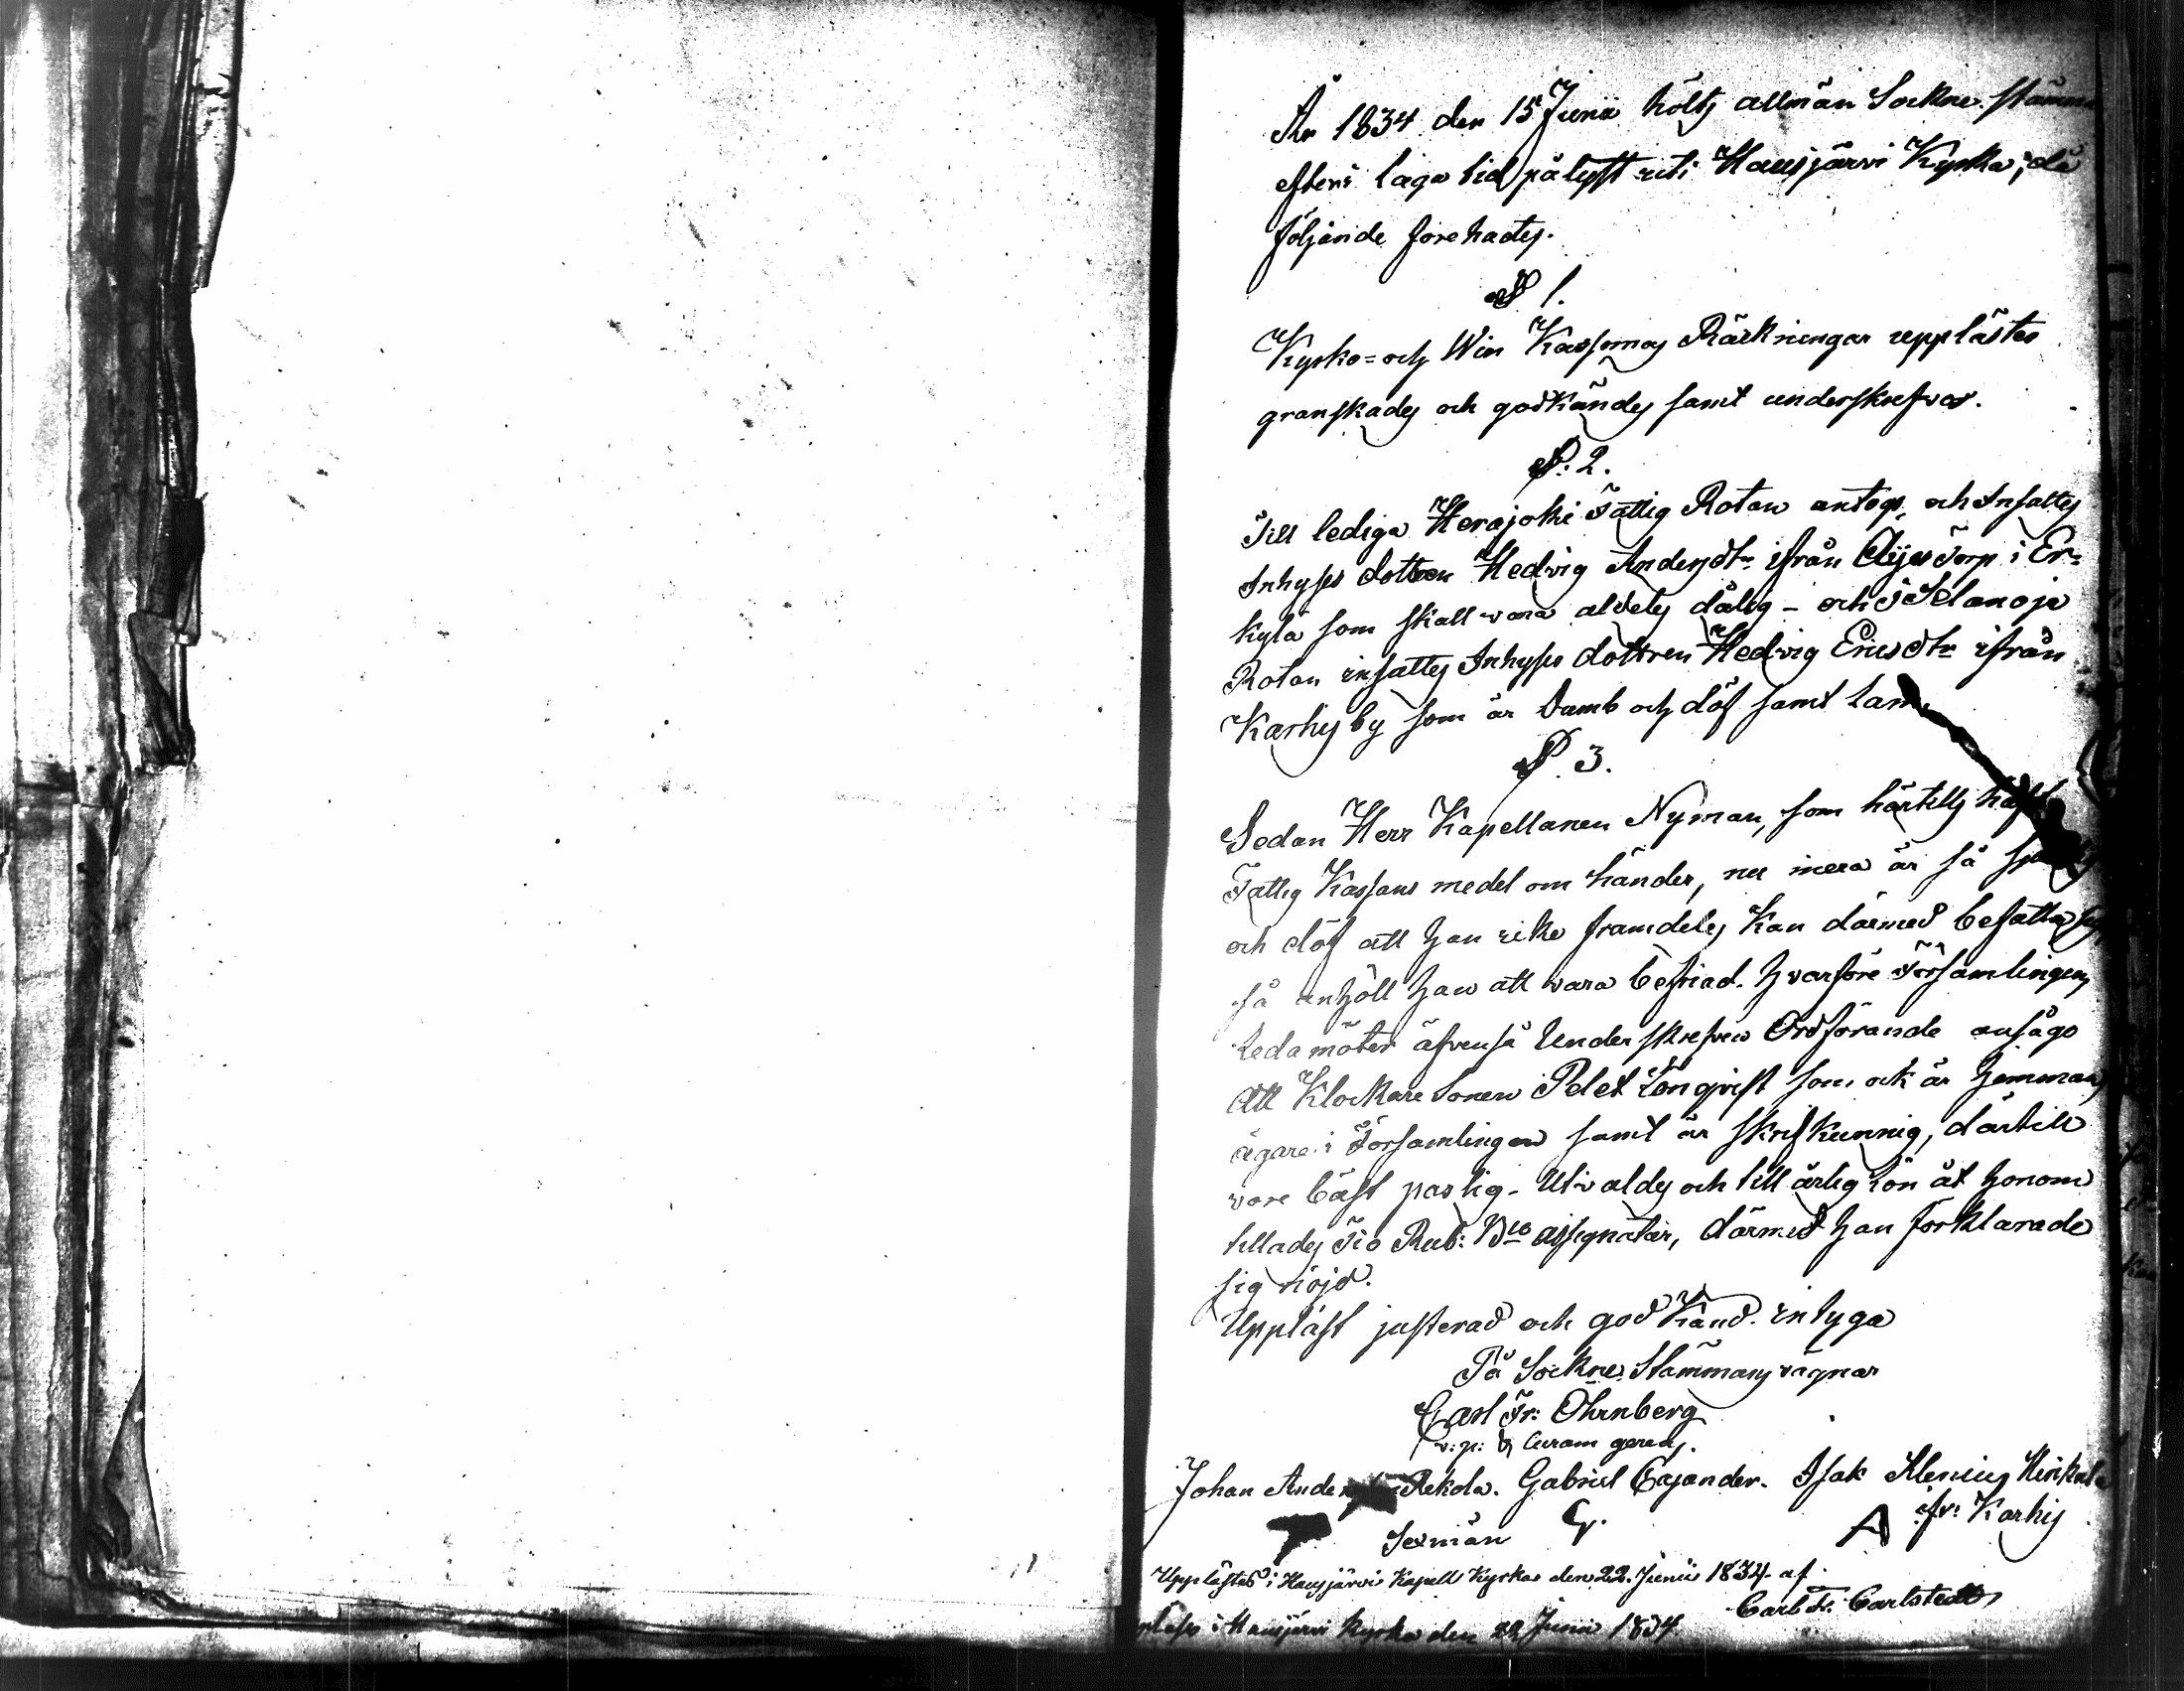 År 1834 den 15 Junii höltz allmän Sockne stämma
efter i laga tid pålyst uti Hausjärvi Kyrka; då
följande förehades.
§ 1.
Kyrko= och Win Kassornas Räckningar upplästes
granskades och godkändes samt underskrefvos.
§. 2.
Till lediga Herajoki Fattig Rotan antogs, och Insattes
Inhyses dottren Hedvig Andersdtr ifrån Äijes Torp i Er=
kylä som skall vara aldeles dålig - och i Selanoja
Rotan insattes Inhyses dottren Hedvig Ericsdtr ifrån
Karhis by som är Dumb och döf samt lam.
§. 3.
Sedan Herr Kapellanen Nyman, som härtills haft
Fattig Kassans medel om händer, nu mera är så
och döf att han icke framdeles kan därmed befatta sig,
så anhöll han att vara befriad. Hvarföre Församlingens
Ledamöter äfvenså Underskrefven Ordförande ansågo
Att Klockare Sonen Petet Lönqvist som ock är hemmans
ägare i Församlingen samt är skrifkunnig, därtill
vore bäst passlig - Utvaldes och till årlig Lön åt honom
tillades Tio Rub: Bco assignater, därmed han förklarade
sig nöjd.
Uppläst justerad och godkänd. intyga
På Sockne Stämmans vägnar
Carl Fr: Öhrnberg
v: p: & Curam gerens.
Johan Anders Rekola. Gabriel Cajander. Isak Klemius Heikkilä
Sexmän G. A fr: Karhis
Upplästes i Hausjärvi Kapell Kyrka den 22. Junii 1834. af
Carl Fr. Carlstedt
i Hausjärvi Kyrka den 22 Junii 1834